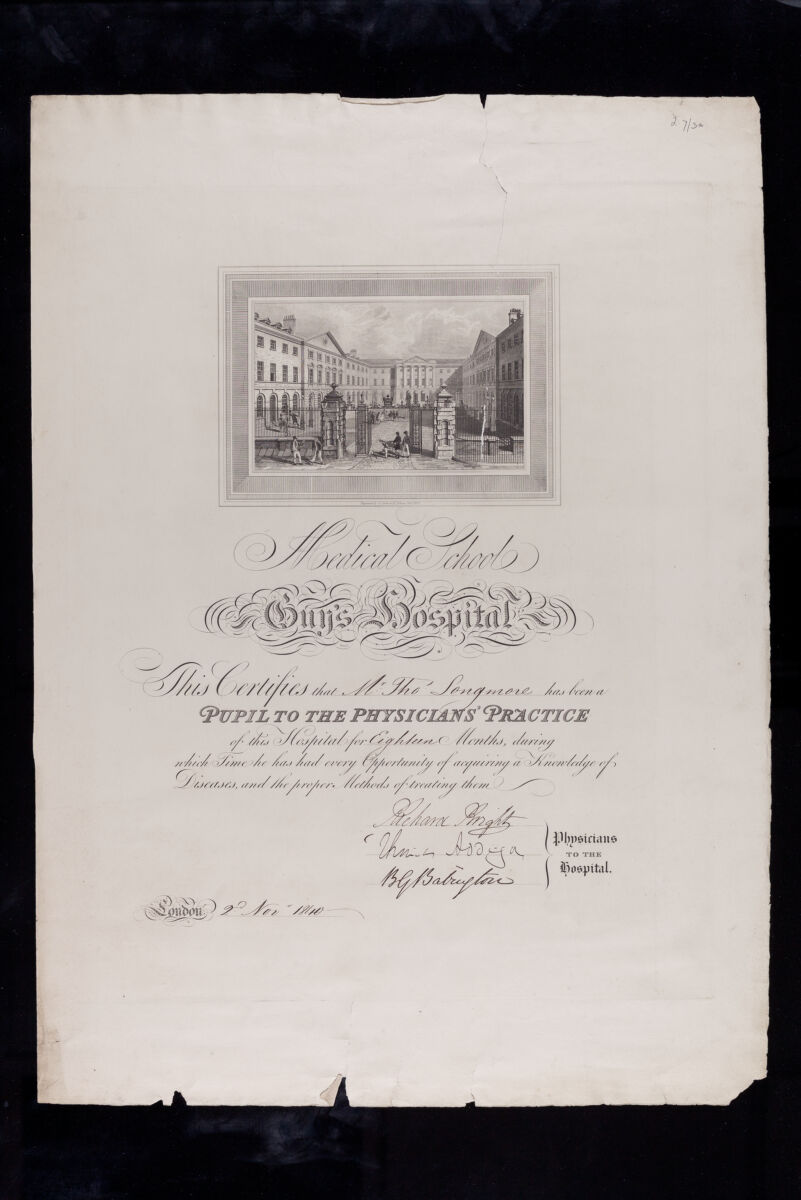 Medical School
Guy's Hospital
This Certifies that Mr. Thos. Longmore has been a
PUPIL TO THE PHYSICIANS' PRACTICE
of this Hospital for Eighteen Months, during
which Time he has had every Opportunity of acquiring a Knowledge of
Diseases, and the proper Methods of treating them
Richard
Physicians
TO THE
Hospital.
B G Babington
London 2d Nov